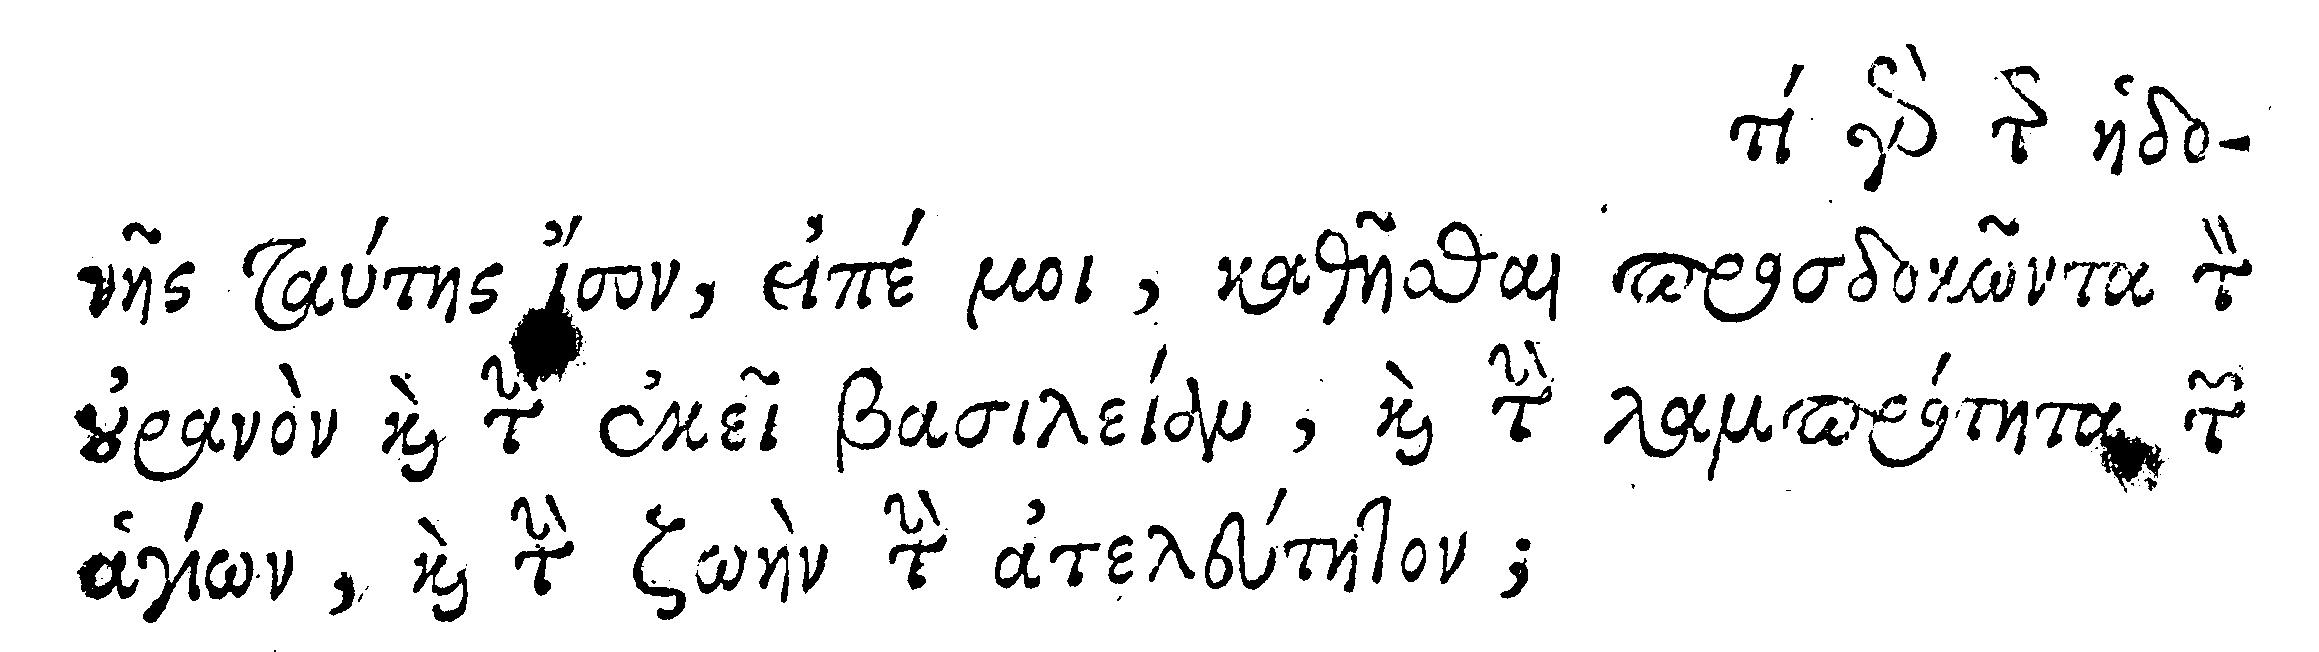 τί γὰρ τῆς ἡδο-
νῆς ταύτης ἴσον, εἰπέ μοι, καθῆσθαι προσδοκῶντα τὸν
οὐρανὸν καὶ τὴν ἐκεῖ βασιλείαν, καὶ τὴν λαμπρότητα τῶν
ἁγίων, καὶ τὴν ζωὴν τὴν ἀτελεύτητον;